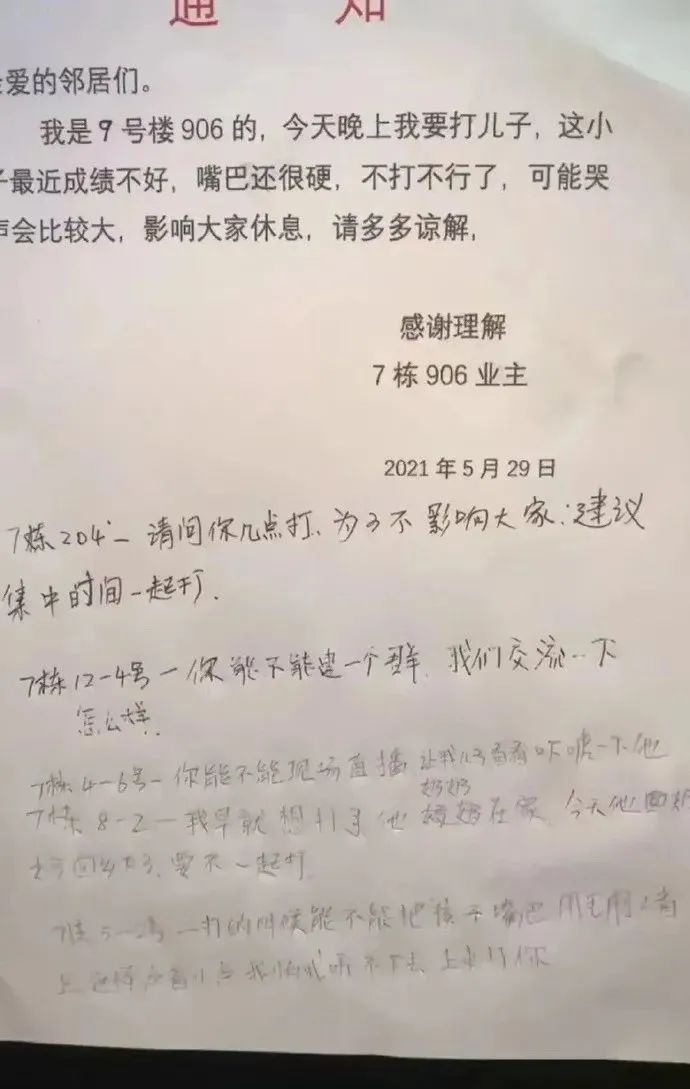 通 知
爱的邻居们。
我是9号楼906的，今天晚上我要打儿子，这小
子最近成绩不好，嘴巴还很硬，不打不行了，可能哭
声会比较大，影响大家休息，请多多谅解，
感谢理解
7栋906业主
2021年5月29日
7栋204一请问你几点打、为了不影响大家：建议
集中时间一起打.
7栋12-4号一你能不能建一个群，我们交流一下
怎么样.
7栋4-6号-你能不能现场直播让我儿子看看吓唬一下他
奶奶
7栋8-2一我早就想打了他 在家，今天他
回乡下了，要不一起打.
一打的时候能不能把孩子嘴巴用毛
上 我怕我听不下去上来打你